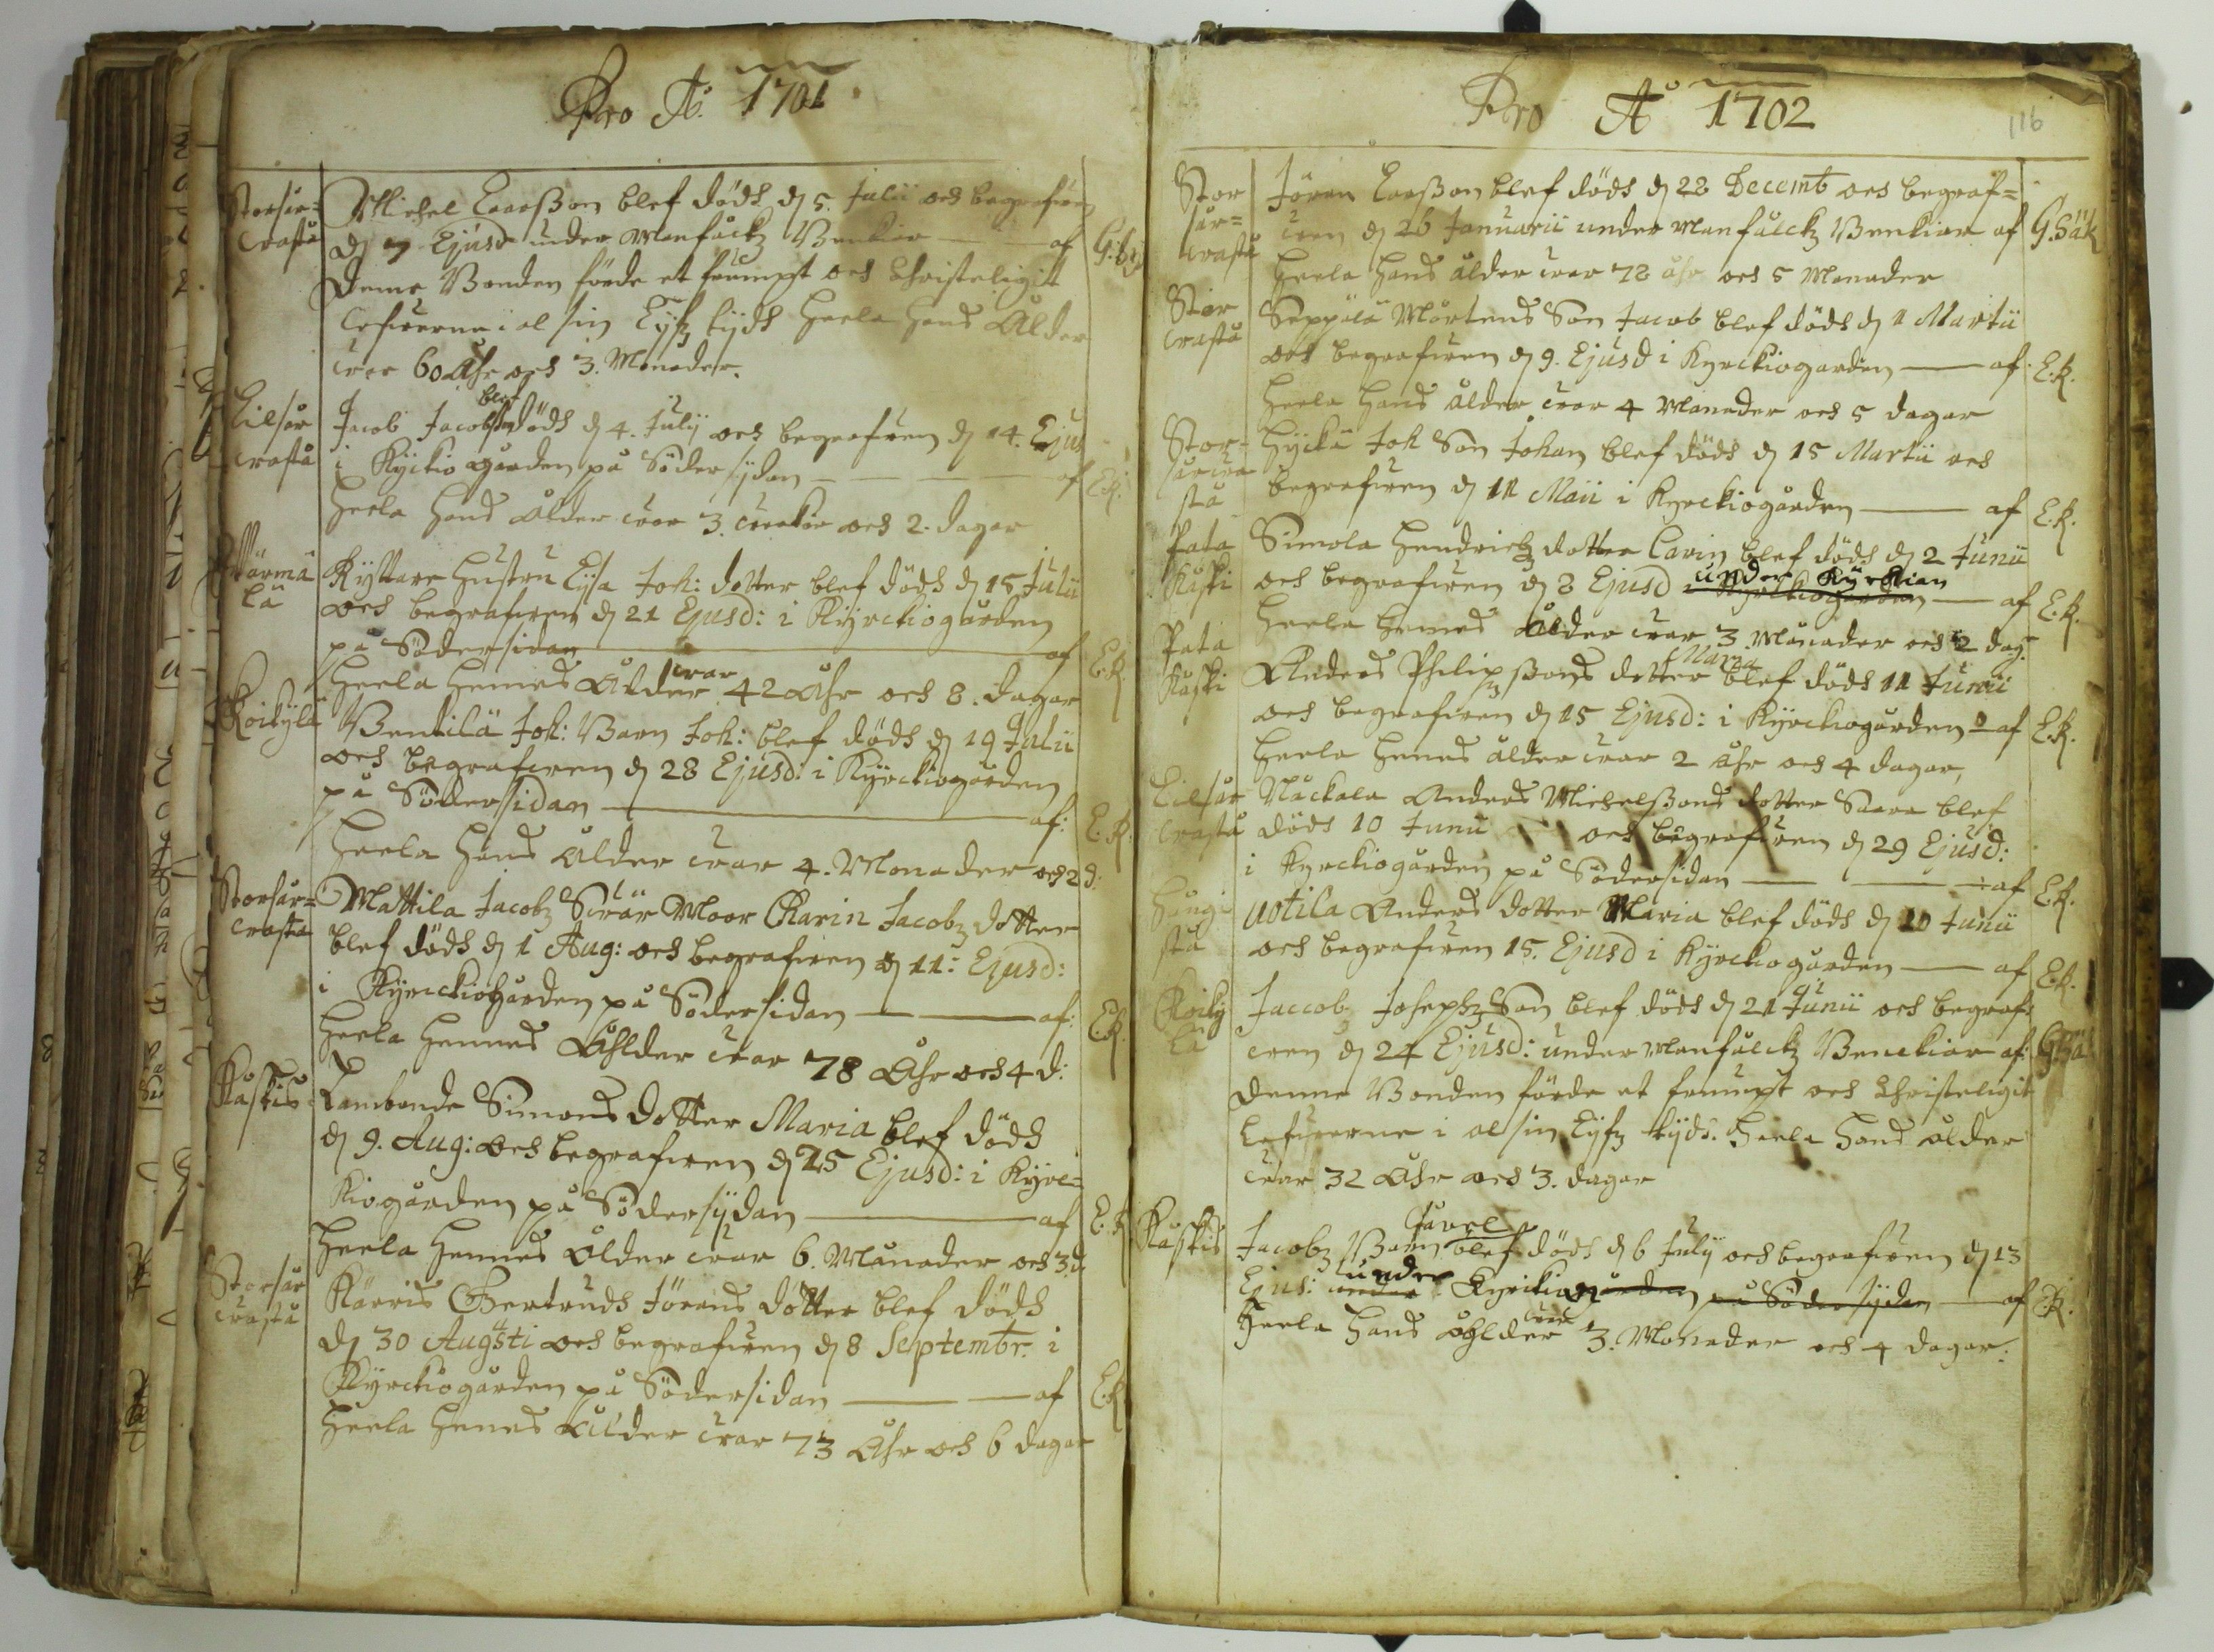 Pro A:o 1701
Storsar=
wasta
Michel Larsson blef dödh dn 5. Julii och begrafwen
dn 7 Ejusd under Manfålckz Benkiar — af
Denne Bonden förde et frumpt och Christeligit
Lefwerne i al sin Lijfz tijdh Heela hans Ålder
war 60 Åhr och 3. Månader.
Lilsar
wasta
Jacob Jacobson blef dödh dn 4. Julij och begrafwen dn 14. Ejus
i Kyrckio gården på Södersijdan — af E.K.
Heela hans Ålder war 3. weckor och 2. dagar
Wärmä
lä
Ryttare Hustru Lysa Joh: dotter blef dödh dn 15 Julii
och begrafwen dn 21 Ejusd: i Kyrckiogården
på Södersidan — af E.K.
Heela Hennes Ålder war 42 Åhr och 8. dagar
Koikylä
Bentilä Joh: Barn Joh: blef dödh dn 19 Julii
och begrafwen dn 28 Ejusd: i Kyrckiogården
på Södersidan — af: E.K.
Heela Hans Ålder war 4. Monader och 2 d:
Storsar=
wasta
Mattila Jacobz Swär Moor Karin Jacobz dotter
blef dödh dn 1 Aug: och begrafwen dn 11: Ejusd:
i Kyrckiogården på Södersidan — af: E.K.
Heela Hennes Åhlder war 78 Åhr och 4 d:
Kaskis
Lambonde Simons dotter Maria blef dödh
dn 9. Aug: och begrafwen dn 25 Ejusd: i Kyrc=
kiogården på Södersijdan — af E.K.
Heela Hennes Ålder war 6. Månader och 3 d.
Storsar
wasta
Kärris Gertruds Jörans dotter blef dödh
dn 30 Augusti och begrafwen dn 8 Septembr. i
Kyrckiogården på Södersidan — af E.K.
Heela Henes Ålder war 73 Åhr och 6 dagar
Pro A:o 1702
116
Stor
sar=
wasta
Jöran Larsson blef dödh dn 28 Decemb och begraf=
wen dn 26 Januarii under Manfålckz Benkiar af
Heela hans ålder war 78 åhr och 5 Monader
Stor
wasta
Seppälä Mårtens Son Jacob blef dödh dn 1 Martii
och begrafwen dn 9. Ejusd i Kyrckiogården — af. E.K.
Heela hans ålder war 4 Manader och 5 dagar
Stor=
sarwa
sta
Hyckä Joh Son Johan blef dödh dn 15 Martii och
begrafwen dn 11 Maii i Kyrckiogården — af E.K.
Pata
Kaski
Simola Hendrichz dotter Carin blef dödh dn 2 Junii
och begrafwen dn 8 Ejusd i Kyrckiogården under Kyrckian — af E.K.
Heela Hennes Ålder war 3 Månader och 2 dag.
Pata
Kaski
Anders Philipzsons dotter Maria blef dödh 11 Junii
och begrafwen dn 15 Ejusd: i Kyrckiogården — af E.K.
Heela Henes ålder war 2 Åhr och 4 dagar,
Lilsar
wasta
Näckala Anders Michelssons dotter Saara blef
dödh 10 Junii och begrafwen dn 29 Ejusd:
i Kyrckiogården på Södersidan — af E.K.
Hangi
sta
Uotila Anders dotter Maria blef dödh dn 10 Junii
och begrafwen 15. Ejusd i Kyrckogården — af E.K.
Koiky
lä
Jaccob Josephz Son blef dödh dn 21 Junii och begraf
wen dn 24 Ejusd: under Manfålckz Benckiar af:
Denne Bonden förde et frumpt och Christeligit
Lefwerne i al sin Lijfz tijdh. Heela Hans ålder
war 32 Åhr och 3. dagar
Kaskis
Jacobz Barn Pavel blef dödh dn 6 Julij och begrafwen dn 13
Ejus: under under Kyrckiogården på Södersijdan — af E.K.
Heela hans åhlder war 3. Monader och 4 dagar: